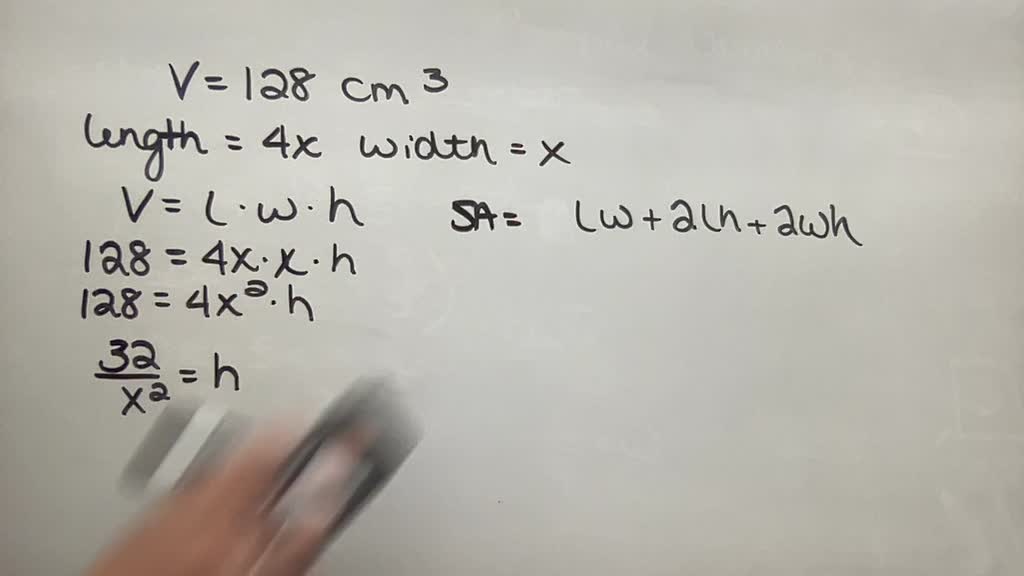 V = 128 cm³
length = 4x width = x
V = l · w · h SA = lw + 2lh + 2wh
128 = 4x · x · h
128 = 4x² · h
32/x² = h